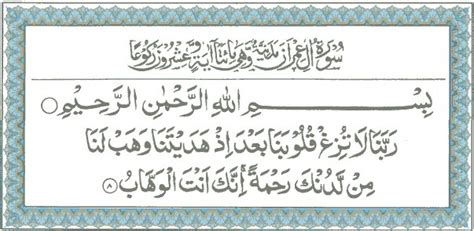 سُوْرَةُ اٰلِ عِمْرٰنَ مَدَنِيَّةٌ وَّهِيَ مِائَتَا اٰيَةٍ وَّعِشْرُوْنَ رُكُوْعًا
بِسْمِ اللهِ الرَّحْمٰنِ الرَّحِيْمِ
رَبَّنَا لَا تُزِغْ قُلُوْبَنَا بَعْدَ اِذْ هَدَيْتَنَا وَهَبْ لَنَا
مِنْ لَّدُنْكَ رَحْمَةً ۚ اِنَّكَ اَنْتَ الْوَهَّابُ ۸